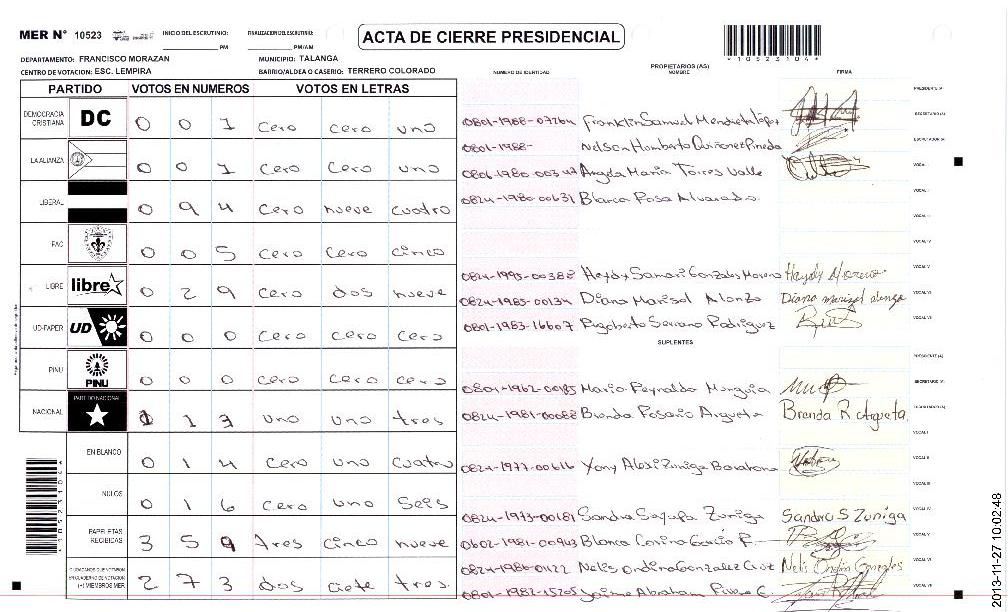 MER N° 10523
INICIO DEL ESCRUTINIO: PM
FINALIZACION DEL ESCRUTINIO: PM/AM
ACTA DE CIERRE PRESIDENCIAL
*10523104*
DEPARTAMENTO: FRANCISCO MORAZAN
MUNICIPIO: TALANGA
CENTRO DE VOTACION: ESC. LEMPIRA
BARRIO/ALDEA O CASERIO: TERRERO COLORADO
NUMERO DE IDENTIDAD
PROPIETARIOS (AS)
NOMBRE
FIRMA
PARTIDO VOTOS EN NUMEROS VOTOS EN LETRAS
DEMOCRACIA CRISTIANA DC 0 0 1 Cero cero uno
LA ALIANZA 0 0 1 Cero Cero uno
LIBERAL 0 9 4 Cero nueve cuatro
PAC 0 0 5 Cero Cero cinco
LIBRE libre 0 2 9 Cero dos nueve
UD-FAPER UD 0 0 0 Cero Cero Cero
PINU PINU 0 0 0 cero Cero cero
NACIONAL PARTIDO NACIONAL 1 1 3 uno uno tres
EN BLANCO 0 1 4 Cero uno Cuatro
NULOS 0 1 6 Cero uno Seis
PAPELETAS RECIBIDAS 3 5 9 tres cinco nueve
CIUDADANOS QUE VOTARON EN CUADERNO DE VOTACION (+) MIEMBROS MER 2 7 3 dos ciete tres
0801-1988-07264 Franklin Samuel Mendieta
PRESIDENTE (A)
0801-1988- Nelson Humberto Quiñonez Pineda
SECRETARIO (A)
ESCRUTADOR (A)
Angela Maria Torres Valle
VOCAL I
0824-1980-00631 Blanca Rosa Alvarado
0824-1995-00388 Heydy Samari Gonzales Moreno Haydy Moreno
VOCAL V
0824-1985-00134 Diana Marisol Alonzo Diana marisol
VOCAL VI
0801-1983-16607 Rigoberto Serrano Rodriguez
VOCAL VII
SUPLENTES
PRESIDENTE (A)
0801-1962-00985 Mario Reynaldo Munguia
SECRETARIO (A)
0824-1981-00088 Brenda Rosario Argueta Brenda R Argueta
0824-1977-00616 Yony Alexi Zuniga Barahona
VOCAL II
VOCAL III
0824-1973-00181 Sandra Zuniga Sandra S Zuniga
VOCAL IV
0602-1981-00943 Blanca Corina Garcia R.
VOCAL V
0824-1986-0122 Nelis Ondina Gonzalez Cruz Nelis Ondina Gonzales
VOCAL VI
0801-1982-15705 Jaime Abraham
VOCAL VII
*10523104*
2013-11-27 10:02:48